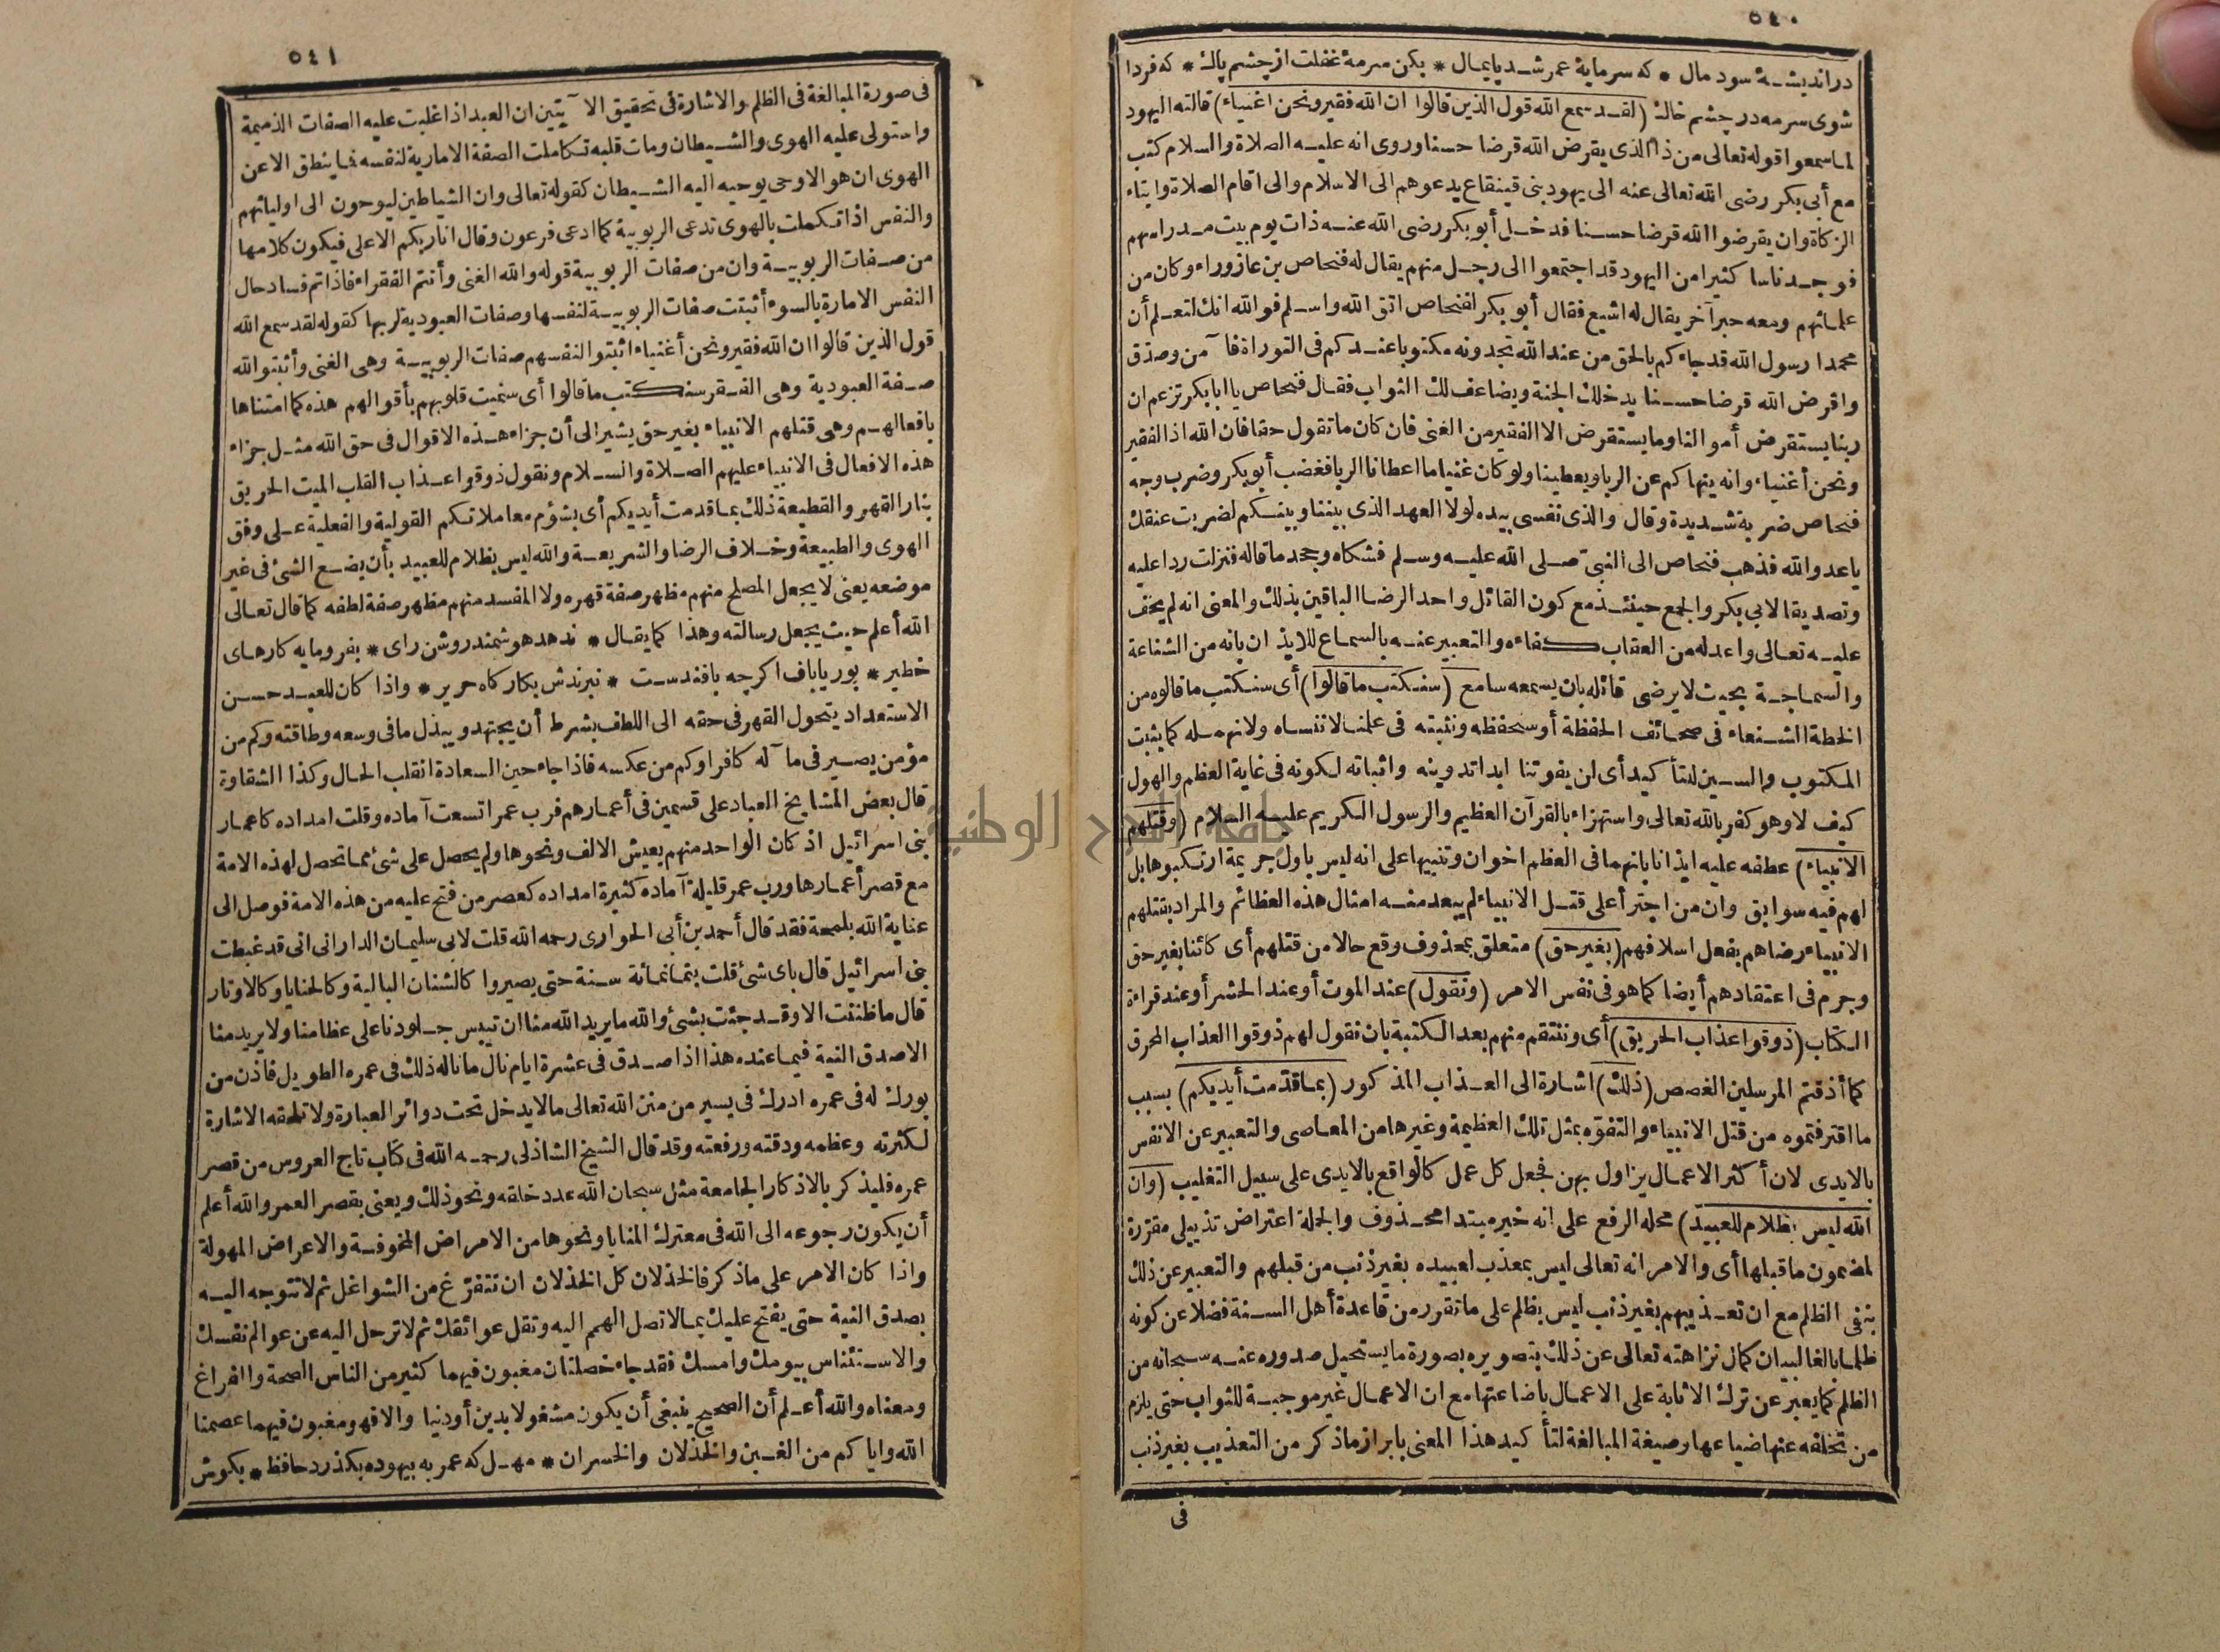 ٥٤٠
در انديشۀ سود مال * كه سرمايۀ عمر شد پايمال * بكن سرمۀ غفلت از چشم پاك * كه فردا
شوى سرمه در چشم خاك (لقد سمع الله قول الذين قالوا ان الله فقير ونحن اغنياء) قالته اليهود
لما سمعوا قوله تعالى من ذا الذى يقرض الله قرضا حسنا وروى انه عليه الصلاة والسلام كتب
مع أبى بكر رضى الله تعالى عنه الى يهود بنى قينقاع يدعوهم الى الاسلام والى اقام الصلاة وايتاء
الزكاة وان يقرضوا الله قرضا حسنا فدخل أبو بكر رضى الله عنه ذات يوم بيت مدراسهم
فوجد ناسا كثيرا من اليهود قد اجتمعوا الى رجل منهم يقال له فنحاص بن عازوراء وكان من
علمائهم ومعه حبر آخر يقال له اشيع فقال أبو بكر لفنحاص اتق الله واسلم فوالله انك لتعلم أن
محمدا رسول الله قد جاءكم بالحق من عند الله تجدونه مكتوبا عندكم فى التوراة فآمن وصدق
واقرض الله قرضا حسنا يدخلك الجنة ويضاعف لك الثواب فقال فنحاص يا ابا بكر تزعم ان
ربنا يستقرض أموالنا وما يستقرض الا الفقير من الغنى فان كان ما تقول حقا فان الله اذا لفقير
ونحن أغنياء وانه ينهاكم عن الربا ويعطينا ولو كان غنيا ما اعطانا الربا فغضب أبو بكر وضرب وجه
فنحاص ضربة شديدة وقال والذى نفسى بيده لولا العهد الذى بيننا وبينكم لضربت عنقك
يا عدو الله فذهب فنحاص الى النبى صلى الله عليه وسلم فشكاه وجحد ما قاله فنزلت ردا عليه
وتصديقا لابى بكر والجمع حينئذ مع كون القائل واحد الرضا الباقين بذلك والمعنى انه لم يخف
عليه تعالى واعد له من العقاب كفاءه والتعبير عنه بالسماع للايذان بانه من الشناعة
والسماجة بحيث لا يرضى قائله بان يسمعه سامع (سنكتب ما قالوا) أى سنكتب ما قالوه من
الخطة الشنعاء فى صحائف الحفظة أو سنحفظه ونثبته فى علمنا لا ننساه ولا نهمله كما يثبت
المكتوب والسين للتأكيد أى ان يفوتنا ابدا تدوينه واثباته لكونه فى غاية العظم والهول
كيف لا وهو كفر بالله تعالى واستهزاء بالقرآن العظيم والرسول الكريم عليه السلام (وقتلهم
الانبياء) عطفه عليه ايذانا بانهما فى العظم اخوان وتنبيها على انه ليس باول جريمة ارتكبوها بل
لهم فيه سوابق وان من اجترأ على قتل الانبياء لم يبعد منه امثال هذه العظائم والمراد بقتلهم
الانبياء رضاهم بفعل اسلافهم (بغير حق) متعلق بمحذوف وقع حالا من قتلهم أى كائنا بغير حق
وجرم فى اعتقادهم أيضا كما هو فى نفس الامر (ونقول) عند الموت أو عند الحشر أو عند قراءة
الكتاب (ذوقوا عذاب الحريق) أى وننتقم منهم بعد الكتبة بان نقول لهم ذوقوا العذاب المحرق
كما أذقتم المرسلين الغصص (ذلك) اشارة الى العذاب المذكور (بما قدمت أيديكم) بسبب
ما اقترفتموه من قتل الانبياء والتفوه بمثل تلك العظيمة وغيرها من المعاصى والتعبير عن الانفس
بالايدى لان أكثر الاعمال يزاول بهن فجعل كل عمل كالواقع بالايدى على سبيل التغليب (وان
الله ليس بظلام للعبيد) محله الرفع على انه خبر مبتدا محذوف والجملة اعتراض تذييلى مقررة
لمضمون ما قبلها أى والامر انه تعالى ليس بمعذب لعبيده بغير ذنب من قبلهم والتعبير عن ذلك
بنفى الظلم مع ان تعذيبهم بغير ذنب ليس بظلم على ما تقرر من قاعدة أهل السنة فضلا عن كونه
ظلما بالغا لبيان كمال نزاهته تعالى عن ذلك بتصويره بصورة ما يستحيل صدوره عنه سبحانه من
الظلم كما يعبر عن ترك الاثابة على الاعمال باضاعتها مع ان الاعمال غير موجبة للثواب حتى يلزم
من تخلفه عنها ضياعها وصيغة المبالغة لتأكيد هذا المعنى بابراز ما ذكر من التعذيب بغير ذنب
فى
٥٤١
فى صورة المبالغة فى الظلم والاشارة فى تحقيق الآيتين ان العبد اذا غلبت عليه الصفات الذميمة
واستولى عليه الهوى والشيطان ومات قلبه تكاملت الصفة الامارية لنفسه فما ينطق الا عن
الهوى ان هو الا وحى يوحيه اليه الشيطان كقوله تعالى وان الشياطين ليوحون الى اوليائهم
والنفس اذا تكملت بالهوى تدعى الربوبية كما ادعى فرعون وقال انا ربكم الاعلى فيكون كلامها
من صفات الربوبية وان من صفات الربوبية قوله والله الغنى وأنتم الفقراء فاذا تم فساد حال
النفس الامارة بالسوء أثبتت صفات الربوبية لنفسها وصفات العبودية لربها كقوله لقد سمع الله
قول الذين قالوا ان الله فقير ونحن أغنياء اثبتوا لنفسهم صفات الربوبية وهى الغنى وأثبتوا لله
صفة العبودية وهى الفقر سنكتب ما قالوا أى سنميت قلوبهم بأقوالهم هذه كما امتناها
بافعالهم وهى قتلهم الانبياء بغير حق يشير الى أن جزاء هذه الاقوال فى حق الله مثل جزاء
هذه الافعال فى الانبياء عليهم الصلاة والسلام ونقول ذوقوا عذاب القلب الميت الحريق
بنار القهر والقطيعة ذلك بما قدمت أيديكم أى بشؤم معاملاتكم القولية والفعلية على وفق
الهوى والطبيعة وخلاف الرضا والشريعة والله ليس بظلام للعبيد بأن يضع الشئ فى غير
موضعه يعنى لا يجعل المصلح منهم مظهر صفة قهره ولا المفسد منهم مظهر صفة لطفه كما قال تعالى
الله أعلم حيث يجعل رسالته وهذا كما يقال * ندهد هوشمند روشن راى * بفرومايه كارهاى
خطير * بوريا باف اكرچه بافندست * نبرندش بكاركاه حرير * واذا كان للعبد حسن
الاستعداد يتحول القهر فى حقه الى اللطف بشرط أن يجتهد ويبذل ما فى وسعه وطاقته وكم من
مؤمن يصير فى مآله كافرا وكم من عكسه فاذا جاء حين السعادة انقلب الحال وكذا الشقاوة
قال بعض المشايخ العباد على قسمين فى أعمارهم فرب عمر اتسعت آماده وقلت امداده كاعمار
بنى اسرائيل اذ كان الواحد منهم يعيش الالف ونحوها ولم يحصل على شئ مما تحصل لهذه الامة
مع قصر أعمارها ورب عمر قليلة آماده كثيرة امداده كعصر من فتح عليه من هذه الامة فوصل الى
عناية الله بلمحة فقد قال أحمد بن أبى الحوارى رحمه الله قلت لابى سليمان الدارانى انى قد غبطت
بنى اسرائيل قال باى شئ قلت بثمانمائة سنة حتى يصيروا كالشنان البالية وكالحنايا وكالاوتار
قال ما ظننت الا وقد جئت بشئ والله ما يريد الله منا ان تيبس جلودنا على عظامنا ولا يريد منا
الا صدق النية فيما عنده هذا اذا صدق فى عشرة ايام نال ما ناله ذلك فى عمره الطويل فاذن من
بورك له فى عمره ادرك فى يسير من منن الله تعالى ما لا يدخل تحت دوائر العبارة ولا تلحقه الاشارة
لكثرته وعظمه ودقته ورفعته وقد قال الشيخ الشاذلى رحمه الله فى كتاب تاج العروس من قصر
عمره فليذكر بالاذكار الجامعة مثل سبحان الله عدد خلقه ونحو ذلك ويعنى بقصر العمر والله أعلم
أن يكون رجوعه الى الله فى معترك المنايا ونحوها من الامراض المخوفة والاعراض المهولة
واذا كان الامر على ما ذكر فالخذلان كل الخذلان ان تتفرغ من الشواغل ثم لا تتوجه اليه
بصدق النية حتى يفتح عليك بما لا تصل الهمم اليه وتقل عوائقك ثم لا ترحل اليه عن عوالم نفسك
والاستئناس بيومك وامسك فقد جاء خصلتان مغبون فيهما كثير من الناس الصحة والفراغ
ومعناه والله أعلم أن الصحيح ينبغى أن يكون مشغولا بدين أو دنيا والا فهو مغبون فيهما عصمنا
الله واياكم من الغبن والخذلان والخسران * مهل كه عمر به بيهوده بكذرد حافظ * بكوش
جامعة النجاح الوطنية